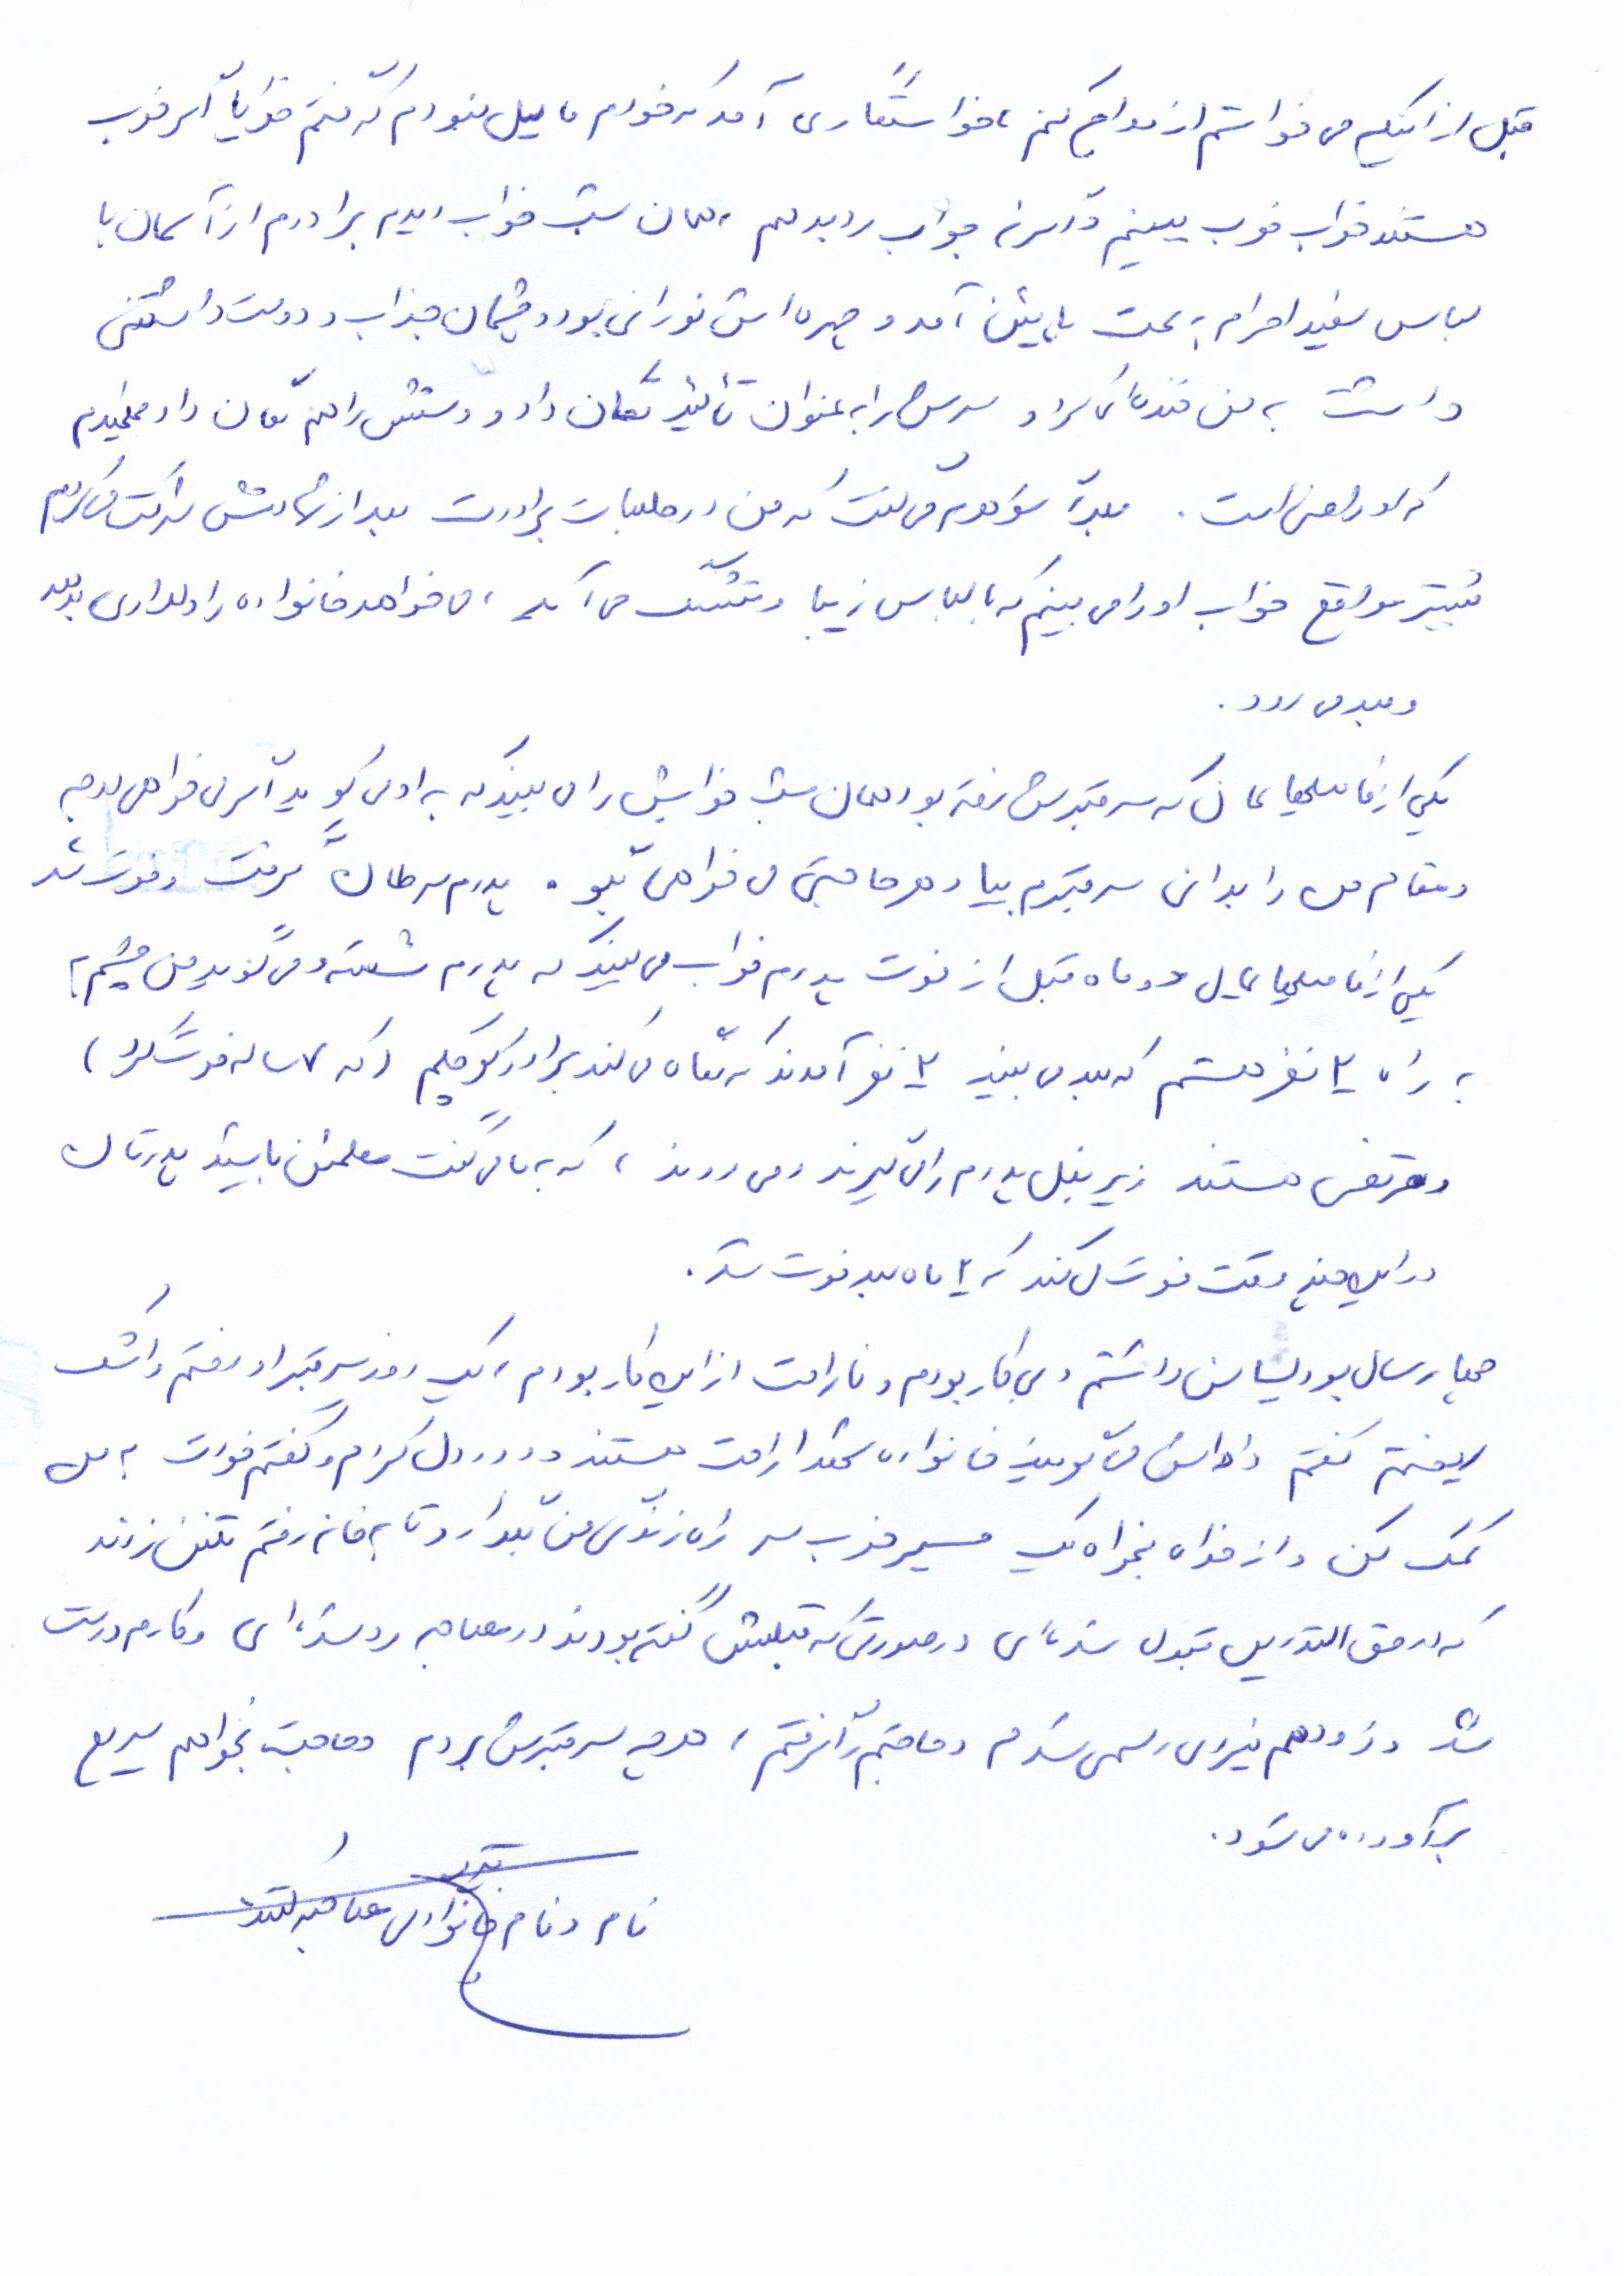 قبل از اینکه می خواستم ازدواج کنم ، خواستگاری آمد که خودم مایل نبودم که گفتم خدایا اگر خوب
هستند خواب خوب ببینم و اگر نه جواب رد بدهم ، همان شب خواب دیدم برادرم از آسمان با
لباس سفید احرام به سمت پایین آمد و چهره اش نورانی بود و چشمان جذاب و دوست داشتنی
داشت به من خنده ای کرد و سرش را به عنوان تائید تکان داد و دستش را هم تکان داد و فهمیدم
که او راضی است . بعداً شوهرم می گفت که من در جلسات برادرت بعد از شهادتش شرکت می کردم
بیشتر مواقع خواب او را می بینم که با لباس زیبا و قشنگ می آید ، می خواهد خانواده را دلداری بدهد
و بعد می رود .
یکی از فامیلهایمان که سر قبرش رفته بود همان شب خوابش را می بیند که به او می گوید اگر می خواهی درجه
و مقام من را بدانی سر قبرم بیا و هر حاجتی می خواهی بگو . پدرم سرطان گرفت و فوت شد
یکی از فامیلهایمان دو ماه قبل از فوت پدرم خواب می بیند که پدرم نشسته و می گوید من چشم
به راه ۲ نفر هستم که بعد می بیند ۲ نفر آمدند که نگاه می کند برادر کوچکم (که ۷ ساله فوت کرد)
و مرتضی هستند زیر بغل پدرم را می گیرند و می روند ، که به ما می گفت مطمئن باشید پدرتان
در این چند وقت فوت می کند که ۲ ماه بعد فوت شد .
چهار سال بود لیسانس داشتم و بی کار بودم و ناراحت از این کار بودم ، یک روز سر قبر او رفتم و اشک
ریختم گفتم داداش می گویند خانواده شهدا راحت هستند و درد دل کردم و گفتم خودت به من
کمک کن و از خداه بخواه یک مسیر خوب سر راه زندگی من بگذارد تا به خانه رفتم تلفن زدند
که در حق التدریس قبول شده ای در صورتی که قبلش گفته بودند در مصاحبه رد شده ای و کارم درست
شد و زود هم نیروی رسمی شدم و حاجتم را گرفتم ، هر چه سر قبرش بروم و حاجت بخواهم سریع
برآورده می شود .
نام و نام خانوادگی مصاحبه کننده